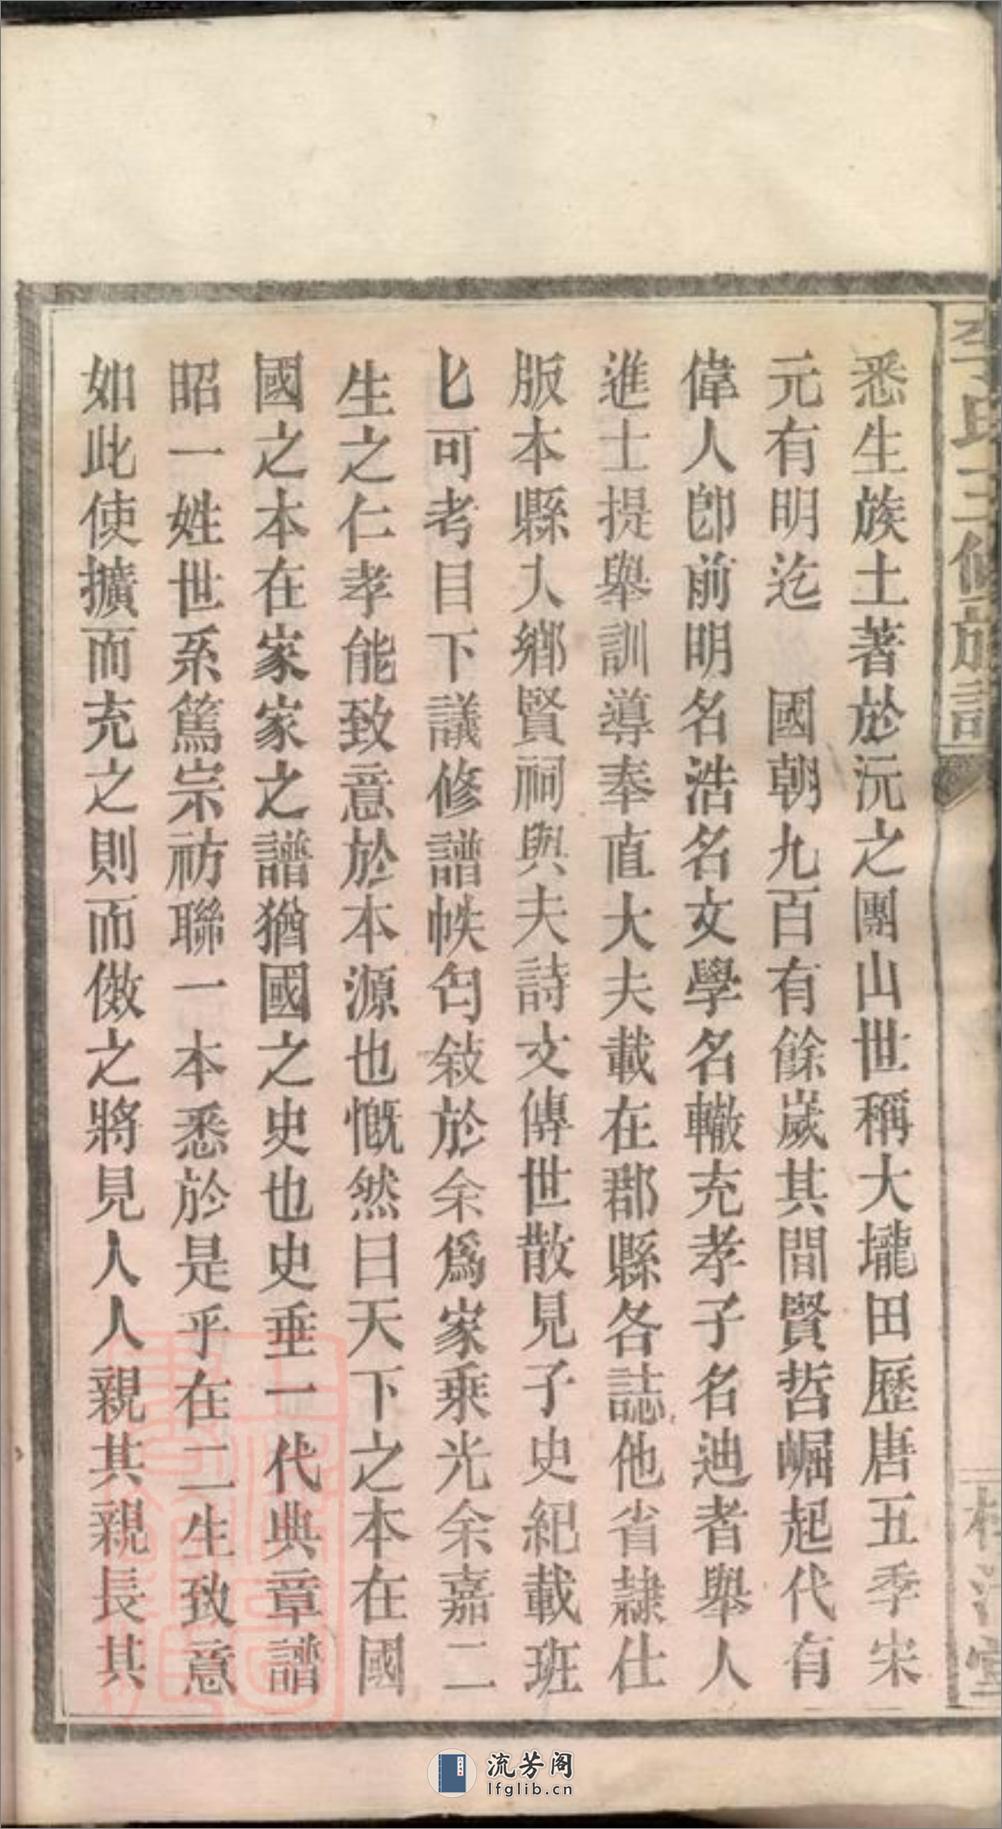 李氏三修族譜
悉生族土著於沅之團山世稱大壠田歷唐五季宋
元有明迄　國朝九百有餘歲其間賢哲崛起代有
偉人卽前明名浩名文學名轍充孝子名迪者舉人
進士提舉訓導奉直大夫載在郡縣各誌他省隸仕
版本縣入鄉賢祠與夫詩文傳世散見子史紀載班
匕可考目下議修譜帙匄敍於余爲家乗光余嘉二
生之仁孝能致意於本源也慨然曰天下之本在國
國之本在家家之譜猶國之史也史垂一代典章譜
昭一姓世系篤宗祊聯一本悉於是乎在二生致意
如此使擴而充之則而傚之將見人人親其親長其
流芳阁
lfglib.cn